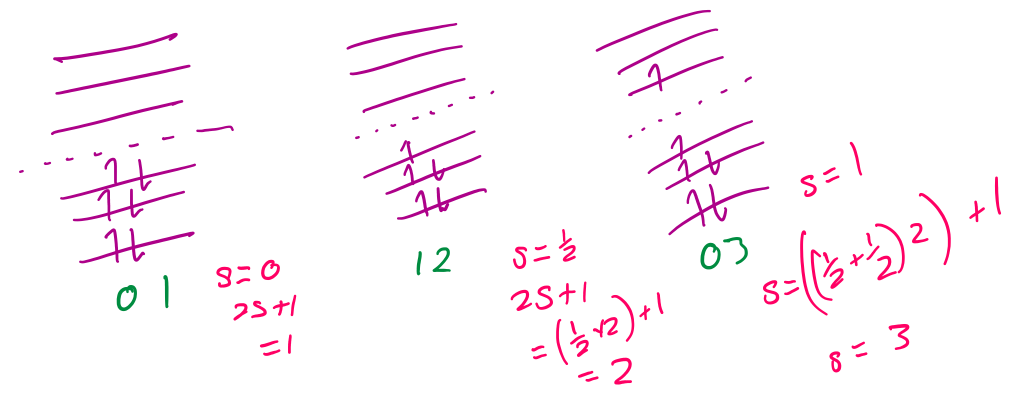 0 1
s=0
2s+1
=1
1 2
s=½
2s+1
=(½×2)+1
=2
03
s=1
s=((½+½)2)+1
s=3